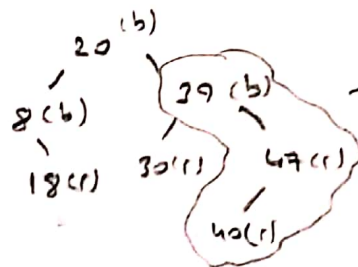 20 (b)
8(b) 39 (b)
18(r) 30(r) 47(r)
40(r)